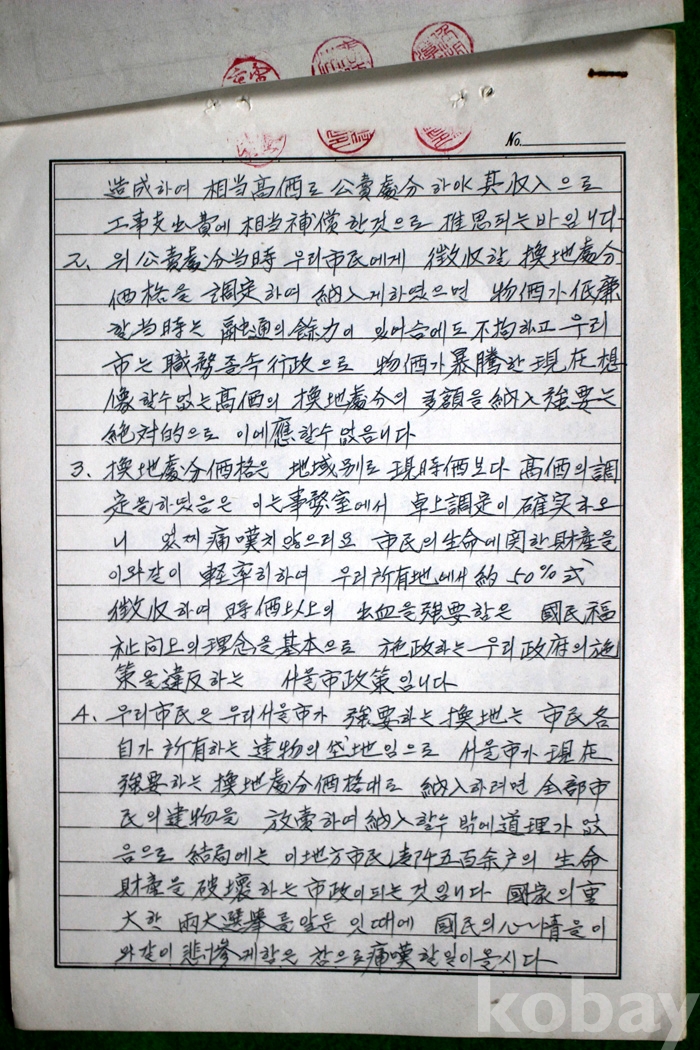 No.
造成하여 相当高価로 公賣處分 하야 其収入으로
工事支出費에 相当補償 한것으로 推思되는바입니다
2. 위 公賣處分当時 우리市民에게 徴収할 換地處分
価格을 調定하여 納入케하였으면 物価가 低廉
할当時는 融通의餘力이 있어슴에도 不拘하고 우리
市는 職務怠속行政으로 物価가 暴騰한 現在 想
像할수없는高価의 換地處分의 多額을 納入 強要는
絶対的으로 이에應할수없읍니다
3. 換地處分価格은 地域別로 現時価보다 高価의調
定을하였음은 이는事務室에서 卓上調定이 確実하오
니 았찌 痛嘆치않으리요 市民의生命에関한財産을
이와같이 軽率히하여 우리所有地에서約 50%式
徴収하여 時価以上의 出血을強要함은 國民福
祉向上의理念을基本으로 施政하는우리政府의施
策을違反하는 서울市政策입니다
4. 우리市民은우리서울市가 強要하는換地는 市民各
自가 所有하는 建物의垈地임으로 서울市가 現在
強要하는 換地處分価格대로 納入하려면 全部市
民의建物을 放賣하여納入할수 밖에道理가 없
음으로 結局에는 이地方市民 五百余戸의 生命
財産을 破壞하는市政이되는것입니다 國家의重
大한 兩大選擧를앞둔 잇때에 國民의心情을이
와같이 悲惨케함은 참으로痛嘆할일이올시다
kobay